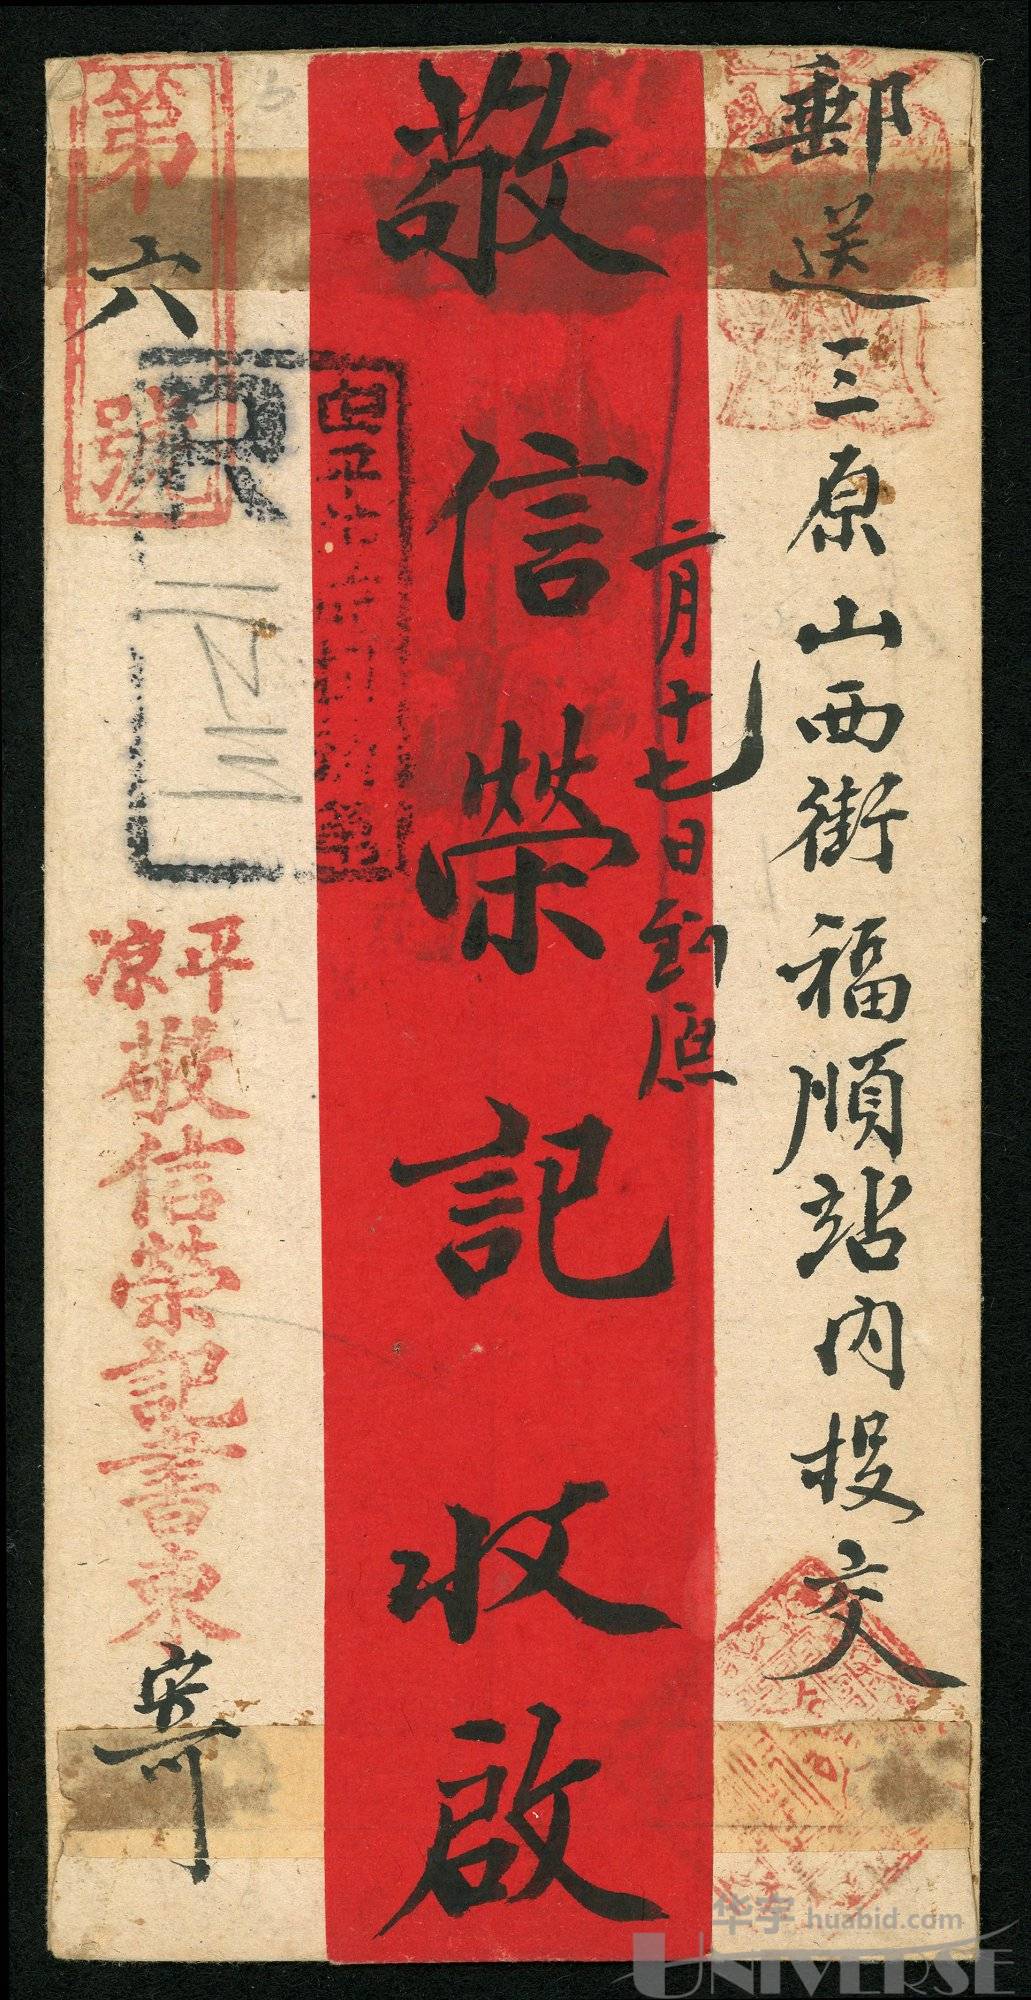 郵送三原山西街福順站內投交
二月十七日到原
敬信榮記收啟
第六號
R
二三乙三
平凉
敬信榮記書柬寄
华宇 huabid.com
UNIVERSE